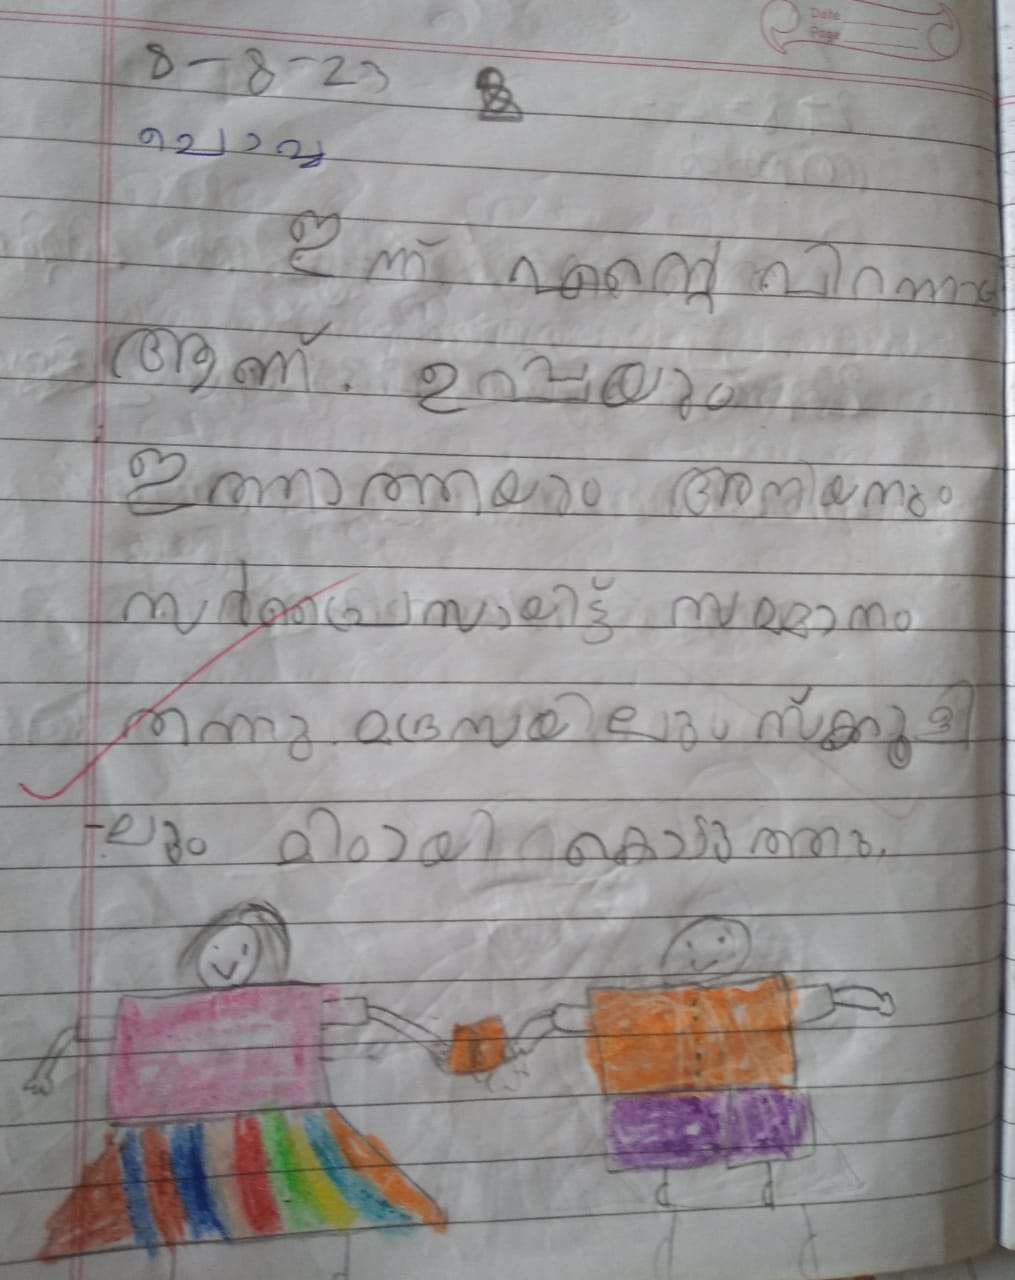 Date
Page
8-8-23
ചൊവ്വ
ഇന്ന് എന്റെ പിറന്നാൾ
ആണ്. ഉപ്പയും
ഇത്താത്തയും അനിയനും
സർപ്രൈസായിട്ട് സമ്മാനം
തന്നു. മദ്രസയിലും സ്കൂളി
-ലും മിഠായി കൊടുത്തു.